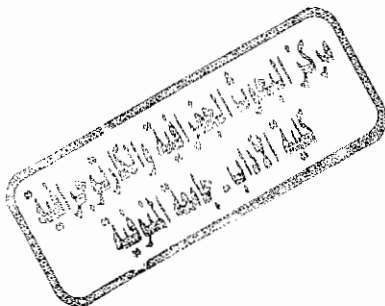 مركز البحوث الجغرافية والكارتوجرافية
كلية الآداب - جامعة المنوفية